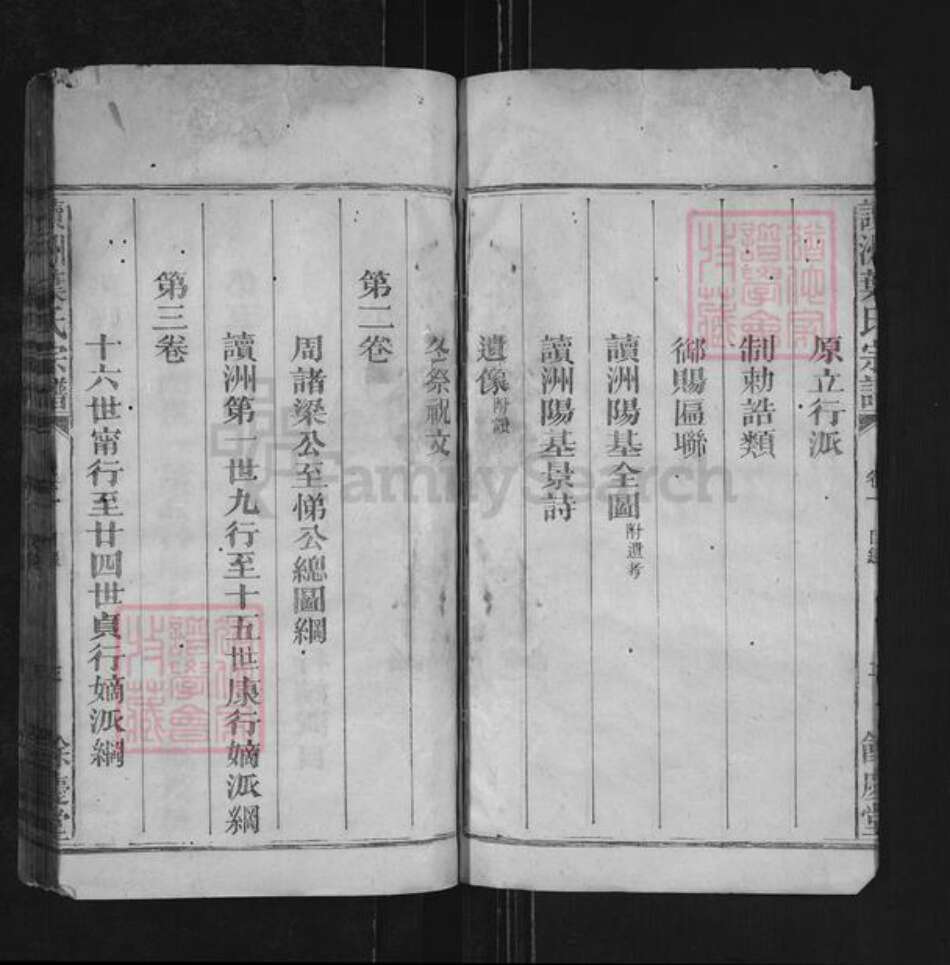 讀洲葉氏宗譜
卷一
目錄
餘慶堂
原立行派
制勅誥類
御賜匾聯
讀洲陽基全圖附遺考
讀洲陽基景詩
遺像附證
冬祭祝文
第二卷
周諸梁公至悌公總圖綱
讀洲第一世九行至十五世康行嫡派綱
第三卷
十六世甯行至廿四世貞行嫡派綱
讀洲葉氏宗譜
餘慶堂
FamilySearch